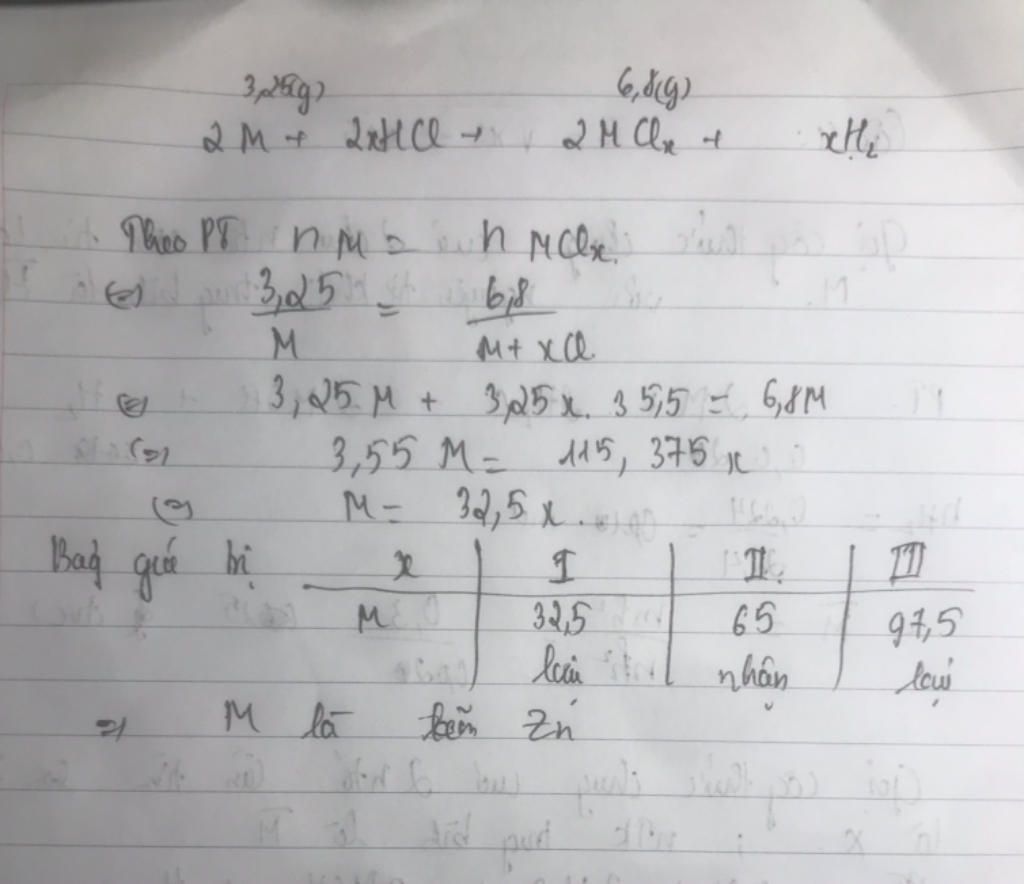 3,25(g) 6,8(g)
2M + 2xHCl → 2MClx + xH2
Theo PT nM = nMClx.
(=) 3,25/M = 6,8/(M + xCl.)
(=) 3,25M + 3,25x. 35,5 = 6,8M
(=) 3,55M = 115,375x
(=) M = 32,5x.
Bag giá trị x | I | II. | III
M | 32,5 | 65 | 97,5
loại | nhận | loại
=) M là kẽm Zn